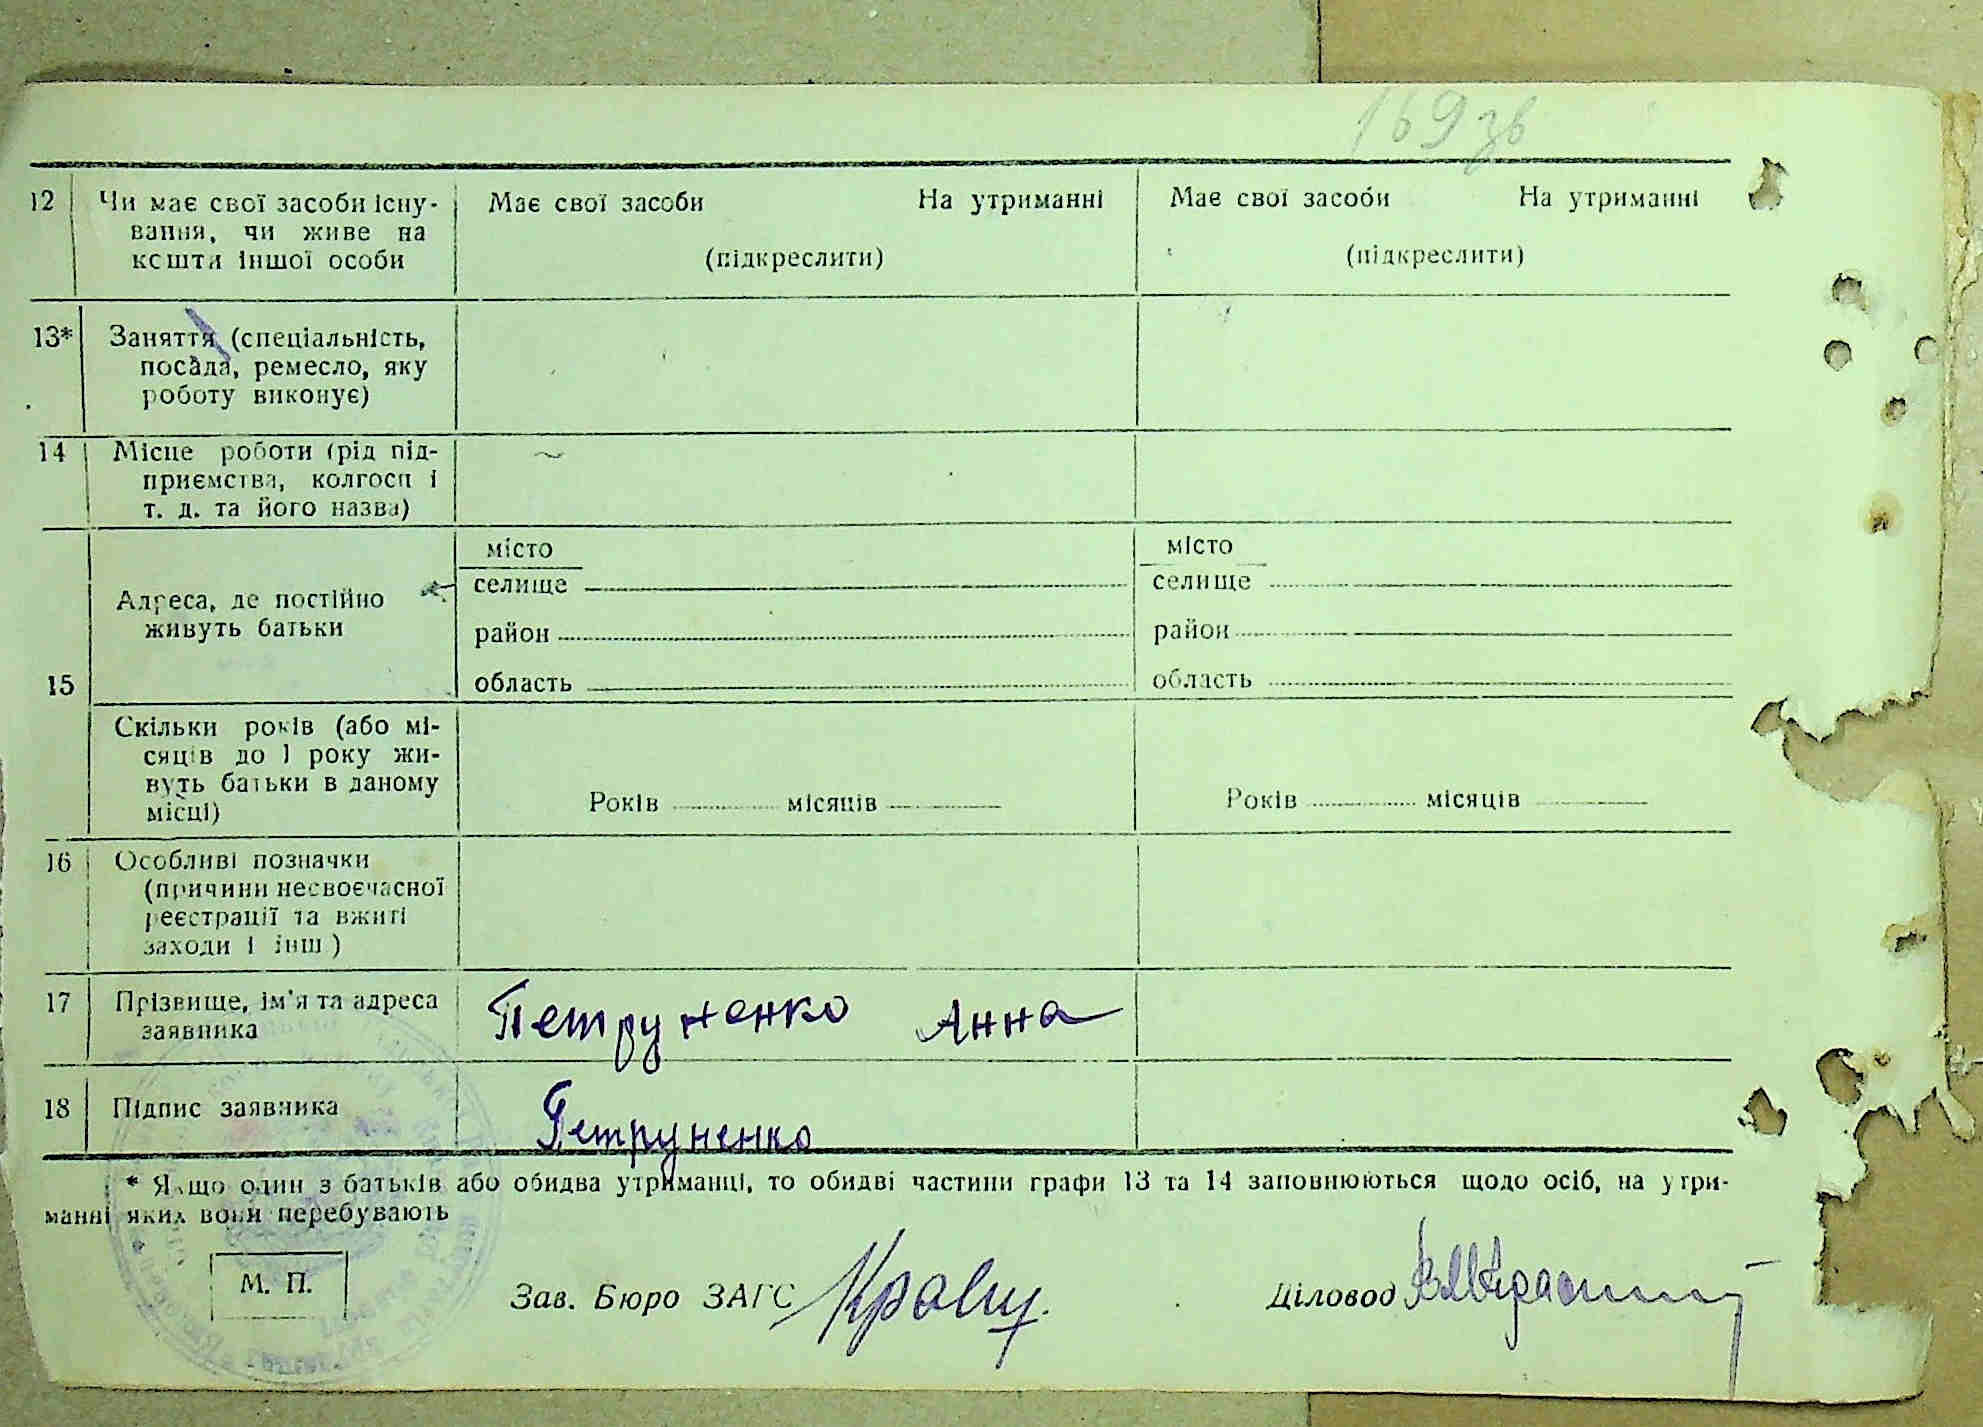 169 зв
12 Чи має свої засоби існу- Має свої засоби На утриманні Має свої засоби На утриманні
вання, чи живе на
кошти іншої особи (підкреслити) (підкреслити)
13* Заняття (спеціальність,
посада, ремесло, яку
роботу виконує)
14 Місце роботи (рід під-
приємства, колгосп і
т. д. та його назва)
місто місто
селище селище
Адреса, де постійно
живуть батьки район район
15 область область
Скільки років (або мі-
сяців до 1 року жи-
вуть батьки в даному
місці) Років місяців Років місяців
16 Особливі позначки
(причини несвоєчасної
реєстрації та вжиті
заходи і інш.)
17 Прізвище, ім'я та адреса Петруненко Анна
заявника
18 Підпис заявника Петруненко
* Якщо один з батьків або обидва утриманці, то обидві частини графи 13 та 14 заповнюються щодо осіб, на утри-
манні яких вони перебувають
М. П. Зав. Бюро ЗАГС Кравц Діловод